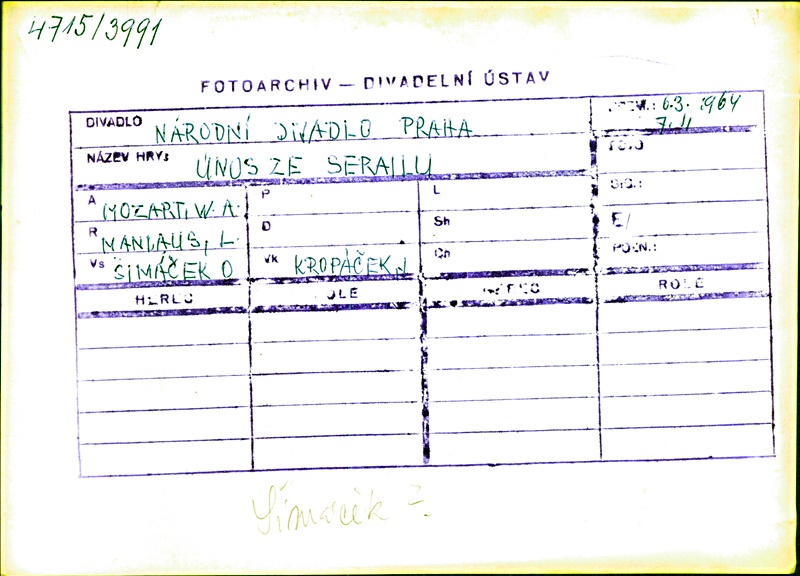 4715/3991
FOTOARCHIV — DIVADELNÍ ÚSTAV
DIVADLO NÁRODNÍ DIVADLO PRAHA
6.3. 1964
NÁZEV HRY: ÚNOS ZE SERAILU
A MOZART, W. A. P L SIG.:
R MANDAUS, L. D Sh F/
Vs ŠIMÁČEK O Vk KROPÁČEK J Ch POZN.:
HEREC ROLE HEREC ROLE
Šimáček